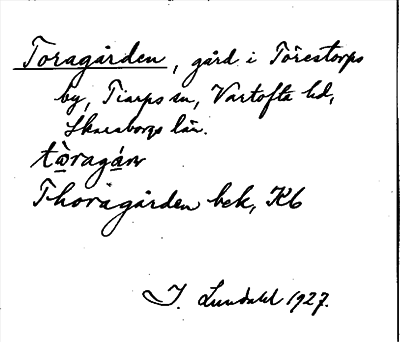 Toragården, gård i Torestorps
by, Tiarps sn, Vartofta hd,
Skaraborgs län.
tòragán
Thoragården bek, Kb
J. Lundahl 1927.